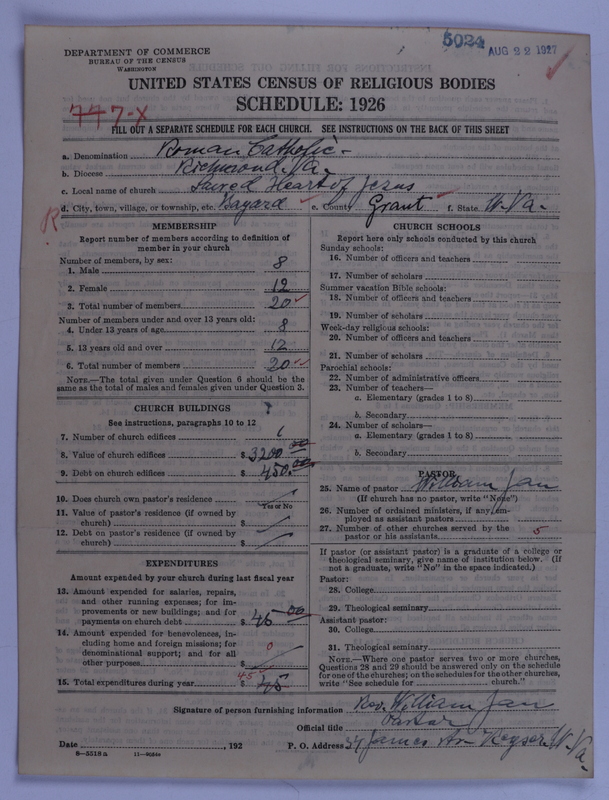 5024
AUG 22 1927
DEPARTMENT OF COMMERCE
BUREAU OF THE CENSUS
WASHINGTON
UNITED STATES CENSUS OF RELIGIOUS BODIES
SCHEDULE: 1926
777-X
FILL OUT A SEPARATE SCHEDULE FOR EACH CHURCH. SEE INSTRUCTIONS ON THE BACK OF THIS SHEET
a. Denomination Roman Catholic -
b. Diocese Richmond. Va.
c. Local name of church Sacred Heart of Jesus
d. City, town, village, or township, etc. Bayard e. County Grant f. State W. Va.
R
MEMBERSHIP
Report number of members according to definition of member in your church
Number of members, by sex:
1. Male 8
2. Female 12
3. Total number of members 20
Number of members under and over 13 years old:
4. Under 13 years of age 8
5. 13 years old and over 12
6. Total number of members 20
NOTE.—The total given under Question 6 should be the same as the total of males and females given under Question 3.
CHURCH BUILDINGS
See instructions, paragraphs 10 to 12
7. Number of church edifices 1
8. Value of church edifices $ 3200.00
9. Debt on church edifices $ 450.00
10. Does church own pastor's residence
Yes or No
11. Value of pastor's residence (if owned by church) $
12. Debt on pastor's residence (if owned by church) $
EXPENDITURES
Amount expended by your church during last fiscal year
13. Amount expended for salaries, repairs, and other running expenses; for improvements or new buildings; and for payments on church debt $ 45.00
14. Amount expended for benevolences, including home and foreign missions; for denominational support; and for all other purposes $ 0
15. Total expenditures during year $ 45 45
CHURCH SCHOOLS
Report here only schools conducted by this church
Sunday schools:
16. Number of officers and teachers
17. Number of scholars
Summer vacation Bible schools:
18. Number of officers and teachers
19. Number of scholars
Week-day religious schools:
20. Number of officers and teachers
21. Number of scholars
Parochial schools:
22. Number of administrative officers
23. Number of teachers—
a. Elementary (grades 1 to 8)
b. Secondary
24. Number of scholars—
a. Elementary (grades 1 to 8)
b. Secondary
PASTOR
25. Name of pastor William Jan
(If church has no pastor, write "None")
26. Number of ordained ministers, if any, employed as assistant pastors
27. Number of other churches served by the pastor or his assistants 5
If pastor (or assistant pastor) is a graduate of a college or theological seminary, give name of institution below. (If not a graduate, write "No" in the space indicated.)
Pastor:
28. College
29. Theological seminary
Assistant pastor:
30. College
31. Theological seminary
NOTE.—Where one pastor serves two or more churches, Questions 28 and 29 should be answered only on the schedule for one of the churches; on the schedules for the other churches, write "See schedule for church."
Signature of person furnishing information Rev. William Jan
Official title Pastor
Date , 192 P. O. Address 34 James Av- Keyser. W. Va.
8-5519a